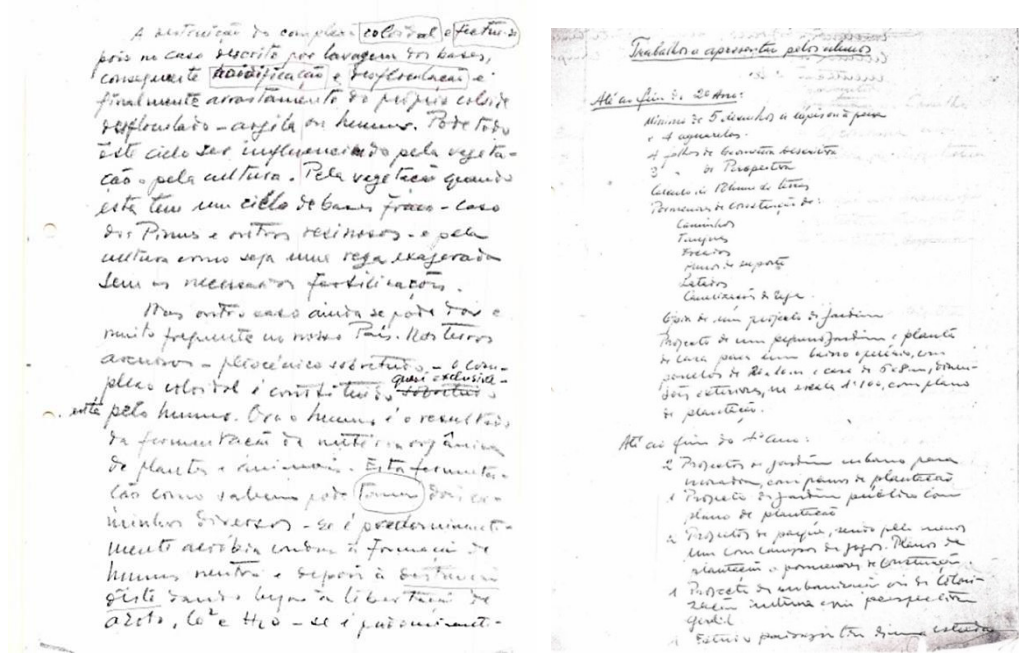 A destruição do complexo coloidal e
pois no caso descrito por lavagem das bases,
consequente e desfloculação e
finalmente arrastamento do próprio coloide
desfloculado - argila ou humus. Pode todo
êste ciclo ser influenciado pela vegeta-
ção e pela cultura. Pela vegetação quando
esta tem um ciclo de bases fraco - caso
dos Pinus e outros resinosos - e pela
cultura como seja uma rega exagerada
sem as necessarias fertilizações.
Mas outro caso ainda se pode dar e
muito frequente no nosso País. Nos terrenos
arenosos - pliocénico sobretudo - o com-
quasi exclusiva-
plexo coloidal é constituido sobretudo
pelo humus. Ora o humus é o resultado
da fermentação da matéria orgânica
de plantas e animais. Esta fermenta-
ção como sabem pode tomar dois ca-
minhos diversos - se é predominante-
mente aeróbia conduz à formação de
humus neutro e depois à destruição
dêste dando lugar à libertação de
azoto, Co² e H₂O - se é
Trabalhos a apresentar pelos alunos
Até ao fim do 2º Ano:
Minimo de 5 desenhos a lapis ou à pena
e 4 aguarelas.
4 folhas de Geometria descritiva
3 " de Perspectiva
Calculo de Volume de terras
Pormenores de construção de:
Caminhos
Tanques
Muros de suporte
Canalização de rega
Copia de um projecto de Jardim
Projecto de um pequeno Jardim e planta
de casa para um bairro com
e casa de 6x8m,
exteriores, na escala 1:100, com plano
de plantação.
Até ao fim do ano:
2 Projectos de jardim urbano para
moradia, com planos de plantação
1 Projecto de jardim público com
plano de plantação
2 Projectos de parque, sendo pelo menos
um com campos de jogos. Planos de
plantação e pormenores de construção.
1 Projecto de urbanização ou de Coloni-
zação interna com perspectiva
geral
1 Estudo paisagistico de uma estrada